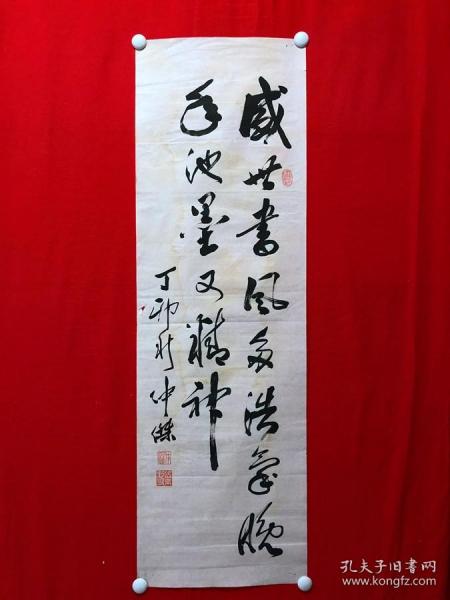 盛世書風多浩氣晚
年池墨又精神
丁卯秋仲傑
孔夫子旧书网
www.kongfz.com